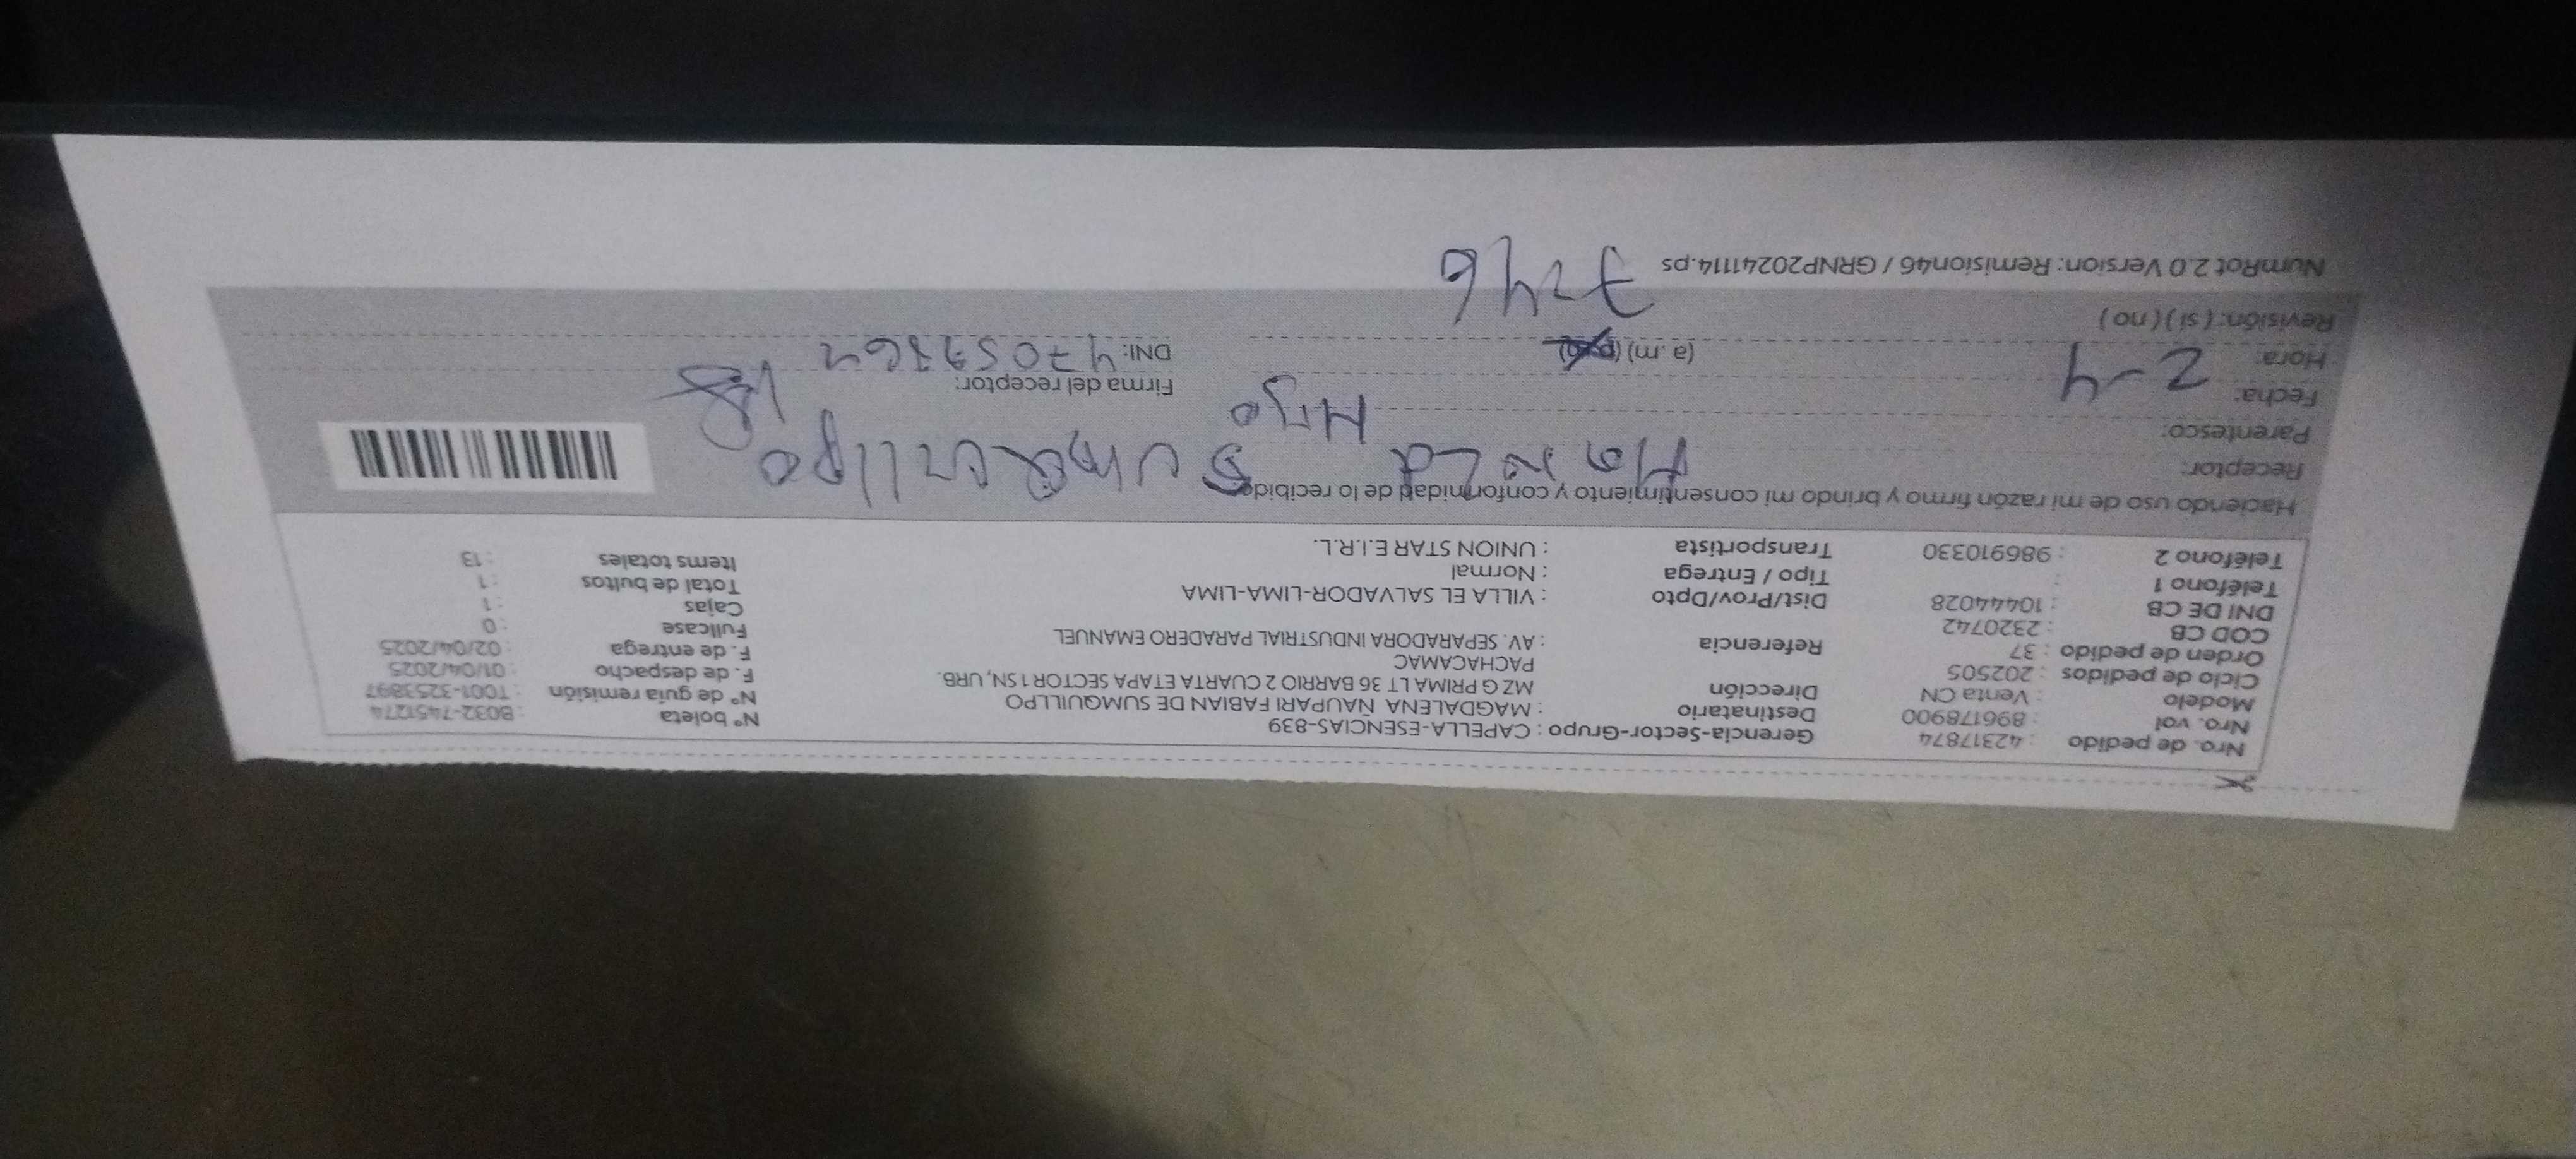 Nro. de pedido : 42317874 Gerencia-Sector-Grupo : CAPELLA-ESENCIAS-839
Nro. vol : 896178900 Destinatario : MAGDALENA ÑAUPARI FABIAN DE SUMQUILLPO Nº boleta : B032-7451274
Modelo : Venta CN Dirección MZ G PRIMA LT 36 BARRIO 2 CUARTA ETAPA SECTOR 1 SN, URB. PACHACAMAC Nº de guía remisión : T001-3253897
Ciclo de pedidos : 202505 F. de despacho : 01/04/2025
Orden de pedido : 37 Referencia : AV. SEPARADORA INDUSTRIAL PARADERO EMANUEL F. de entrega : 02/04/2025
COD CB : 2320742 Fullcase : 0
DNI DE CB : 10444028 Dist/Prov/Dpto : VILLA EL SALVADOR-LIMA-LIMA Cajas : 1
Teléfono 1 : Tipo / Entrega : Normal Total de bultos : 1
Teléfono 2 : 986910330 Transportista : UNION STAR E.I.R.L. Items totales : 13
Haciendo uso de mi razón firmo y brindo mi consentimiento y conformidad de lo recibido
Receptor:
Parentesco: Hijo
Fecha: 2-4 Firma del receptor:
Hora: (a.m) DNI:
Revisión: ( si ) ( no )
NumRot 2.0 Version: Remision46 / GRNP20241114.ps